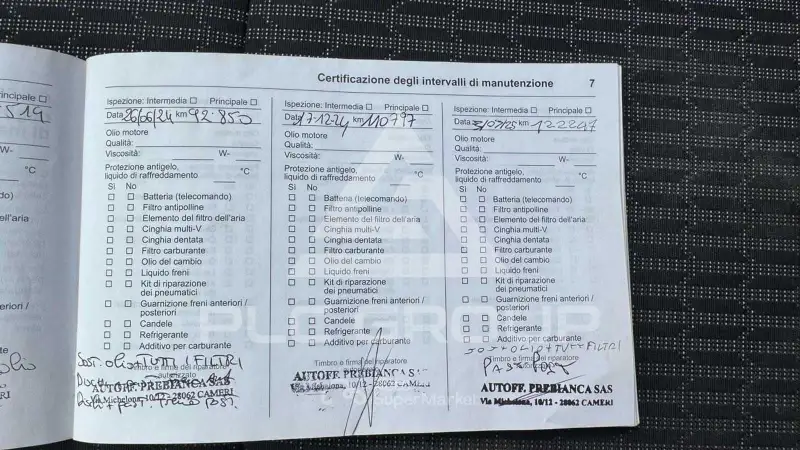 Certificazione degli intervalli di manutenzione 7
Ispezione: Intermedia ☐ Principale ☐
Data 26/06/24 km 92850
Olio motore
Qualità:
Viscosità: W-
Protezione antigelo,
liquido di raffreddamento °C
Sì No
☐ ☐ Batteria (telecomando)
☐ ☐ Filtro antipolline
☐ ☐ Elemento del filtro dell'aria
☐ ☐ Cinghia multi-V
☐ ☐ Cinghia dentata
☐ ☐ Filtro carburante
☐ ☐ Olio del cambio
☐ ☐ Liquido freni
☐ ☐ Kit di riparazione
dei pneumatici
☐ ☐ Guarnizione freni anteriori /
posteriori
☐ ☐ Candele
☐ ☐ Refrigerante
☐ ☐ Additivo per carburante
Sost. olio TUTTI I FILTRI
autorizzato
AUTOFF. PREBIANCA SAS
Via Michelona, 10/12 - 28062 CAMERI
Ispezione: Intermedia ☐ Principale ☐
Data 17-12-24 km 110797
Olio motore
Qualità:
Viscosità: W-
Protezione antigelo,
liquido di raffreddamento °C
Sì No
☐ ☐ Batteria (telecomando)
☐ ☐ Filtro antipolline
☐ ☐ Elemento del filtro dell'aria
☐ ☐ Cinghia multi-V
☐ ☐ Cinghia dentata
☐ ☐ Filtro carburante
☐ ☐ Olio del cambio
☐ ☐ Liquido freni
☐ ☐ Kit di riparazione
dei pneumatici
☐ ☐ Guarnizione freni anteriori /
posteriori
☐ ☐ Candele
☐ ☐ Refrigerante
☐ ☐ Additivo per carburante
Timbro e firma del riparatore
AUTOFF. PREBIANCA SAS
Via Michelona, 10/12 - 28062 CAMERI
Ispezione: Intermedia ☐ Principale ☐
Data /07/25 km 122297
Olio motore
Qualità:
Viscosità: W-
Protezione antigelo,
liquido di raffreddamento °C
Sì No
☐ ☐ Batteria (telecomando)
☐ ☐ Filtro antipolline
☐ ☐ Elemento del filtro dell'aria
☐ ☐ Cinghia multi-V
☐ ☐ Cinghia dentata
☐ ☐ Filtro carburante
☐ ☐ Olio del cambio
☐ ☐ Liquido freni
☐ ☐ Kit di riparazione
dei pneumatici
☐ ☐ Guarnizione freni anteriori /
posteriori
☐ ☐ Candele
☐ ☐ Refrigerante
☐ ☐ Additivo per carburante
Timbro e firma del riparatore
AUTOFF. PREBIANCA SAS
Via Michelona, 10/12 - 28062 CAMERI
PLC GROUP
SuperMarket